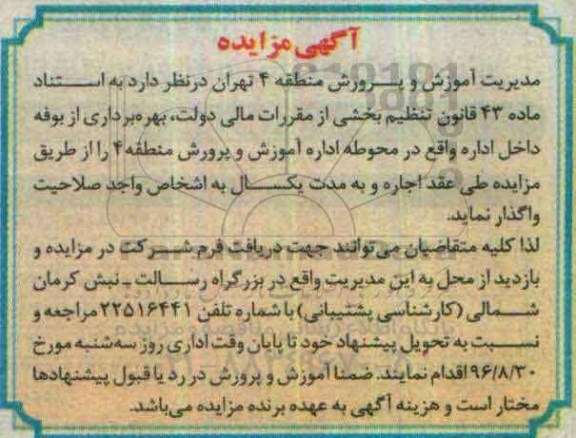 آگهی مزایده
مدیریت آموزش و پــرورش منطقه ۴ تهران درنظر دارد به اســتناد
ماده ۴۳ قانون تنظیم بخشی از مقررات مالی دولت، بهره‌برداری از بوفه
داخل اداره واقع در محوطه اداره آموزش و پرورش منطقه ۴ را از طریق
مزایده طی عقد اجاره و به مدت یکســال به اشخاص واجد صلاحیت
واگذار نماید.
لذا کلیه متقاضیان می‌توانند جهت دریافت فرم شــرکت در مزایده و
بازدید از محل به این مدیریت واقع در بزرگراه رســالت ـ نبش کرمان
شــمالی (کارشناسی پشتیبانی) با شماره تلفن ۲۲۵۱۶۴۴۱ مراجعه و
نســبت به تحویل پیشنهاد خود تا پایان وقت اداری روز سه‌شنبه مورخ
۹۶/۸/۳۰ اقدام نمایند. ضمنا آموزش و پرورش در رد یا قبول پیشنهادها
مختار است و هزینه آگهی به عهده برنده مزایده می‌باشد.